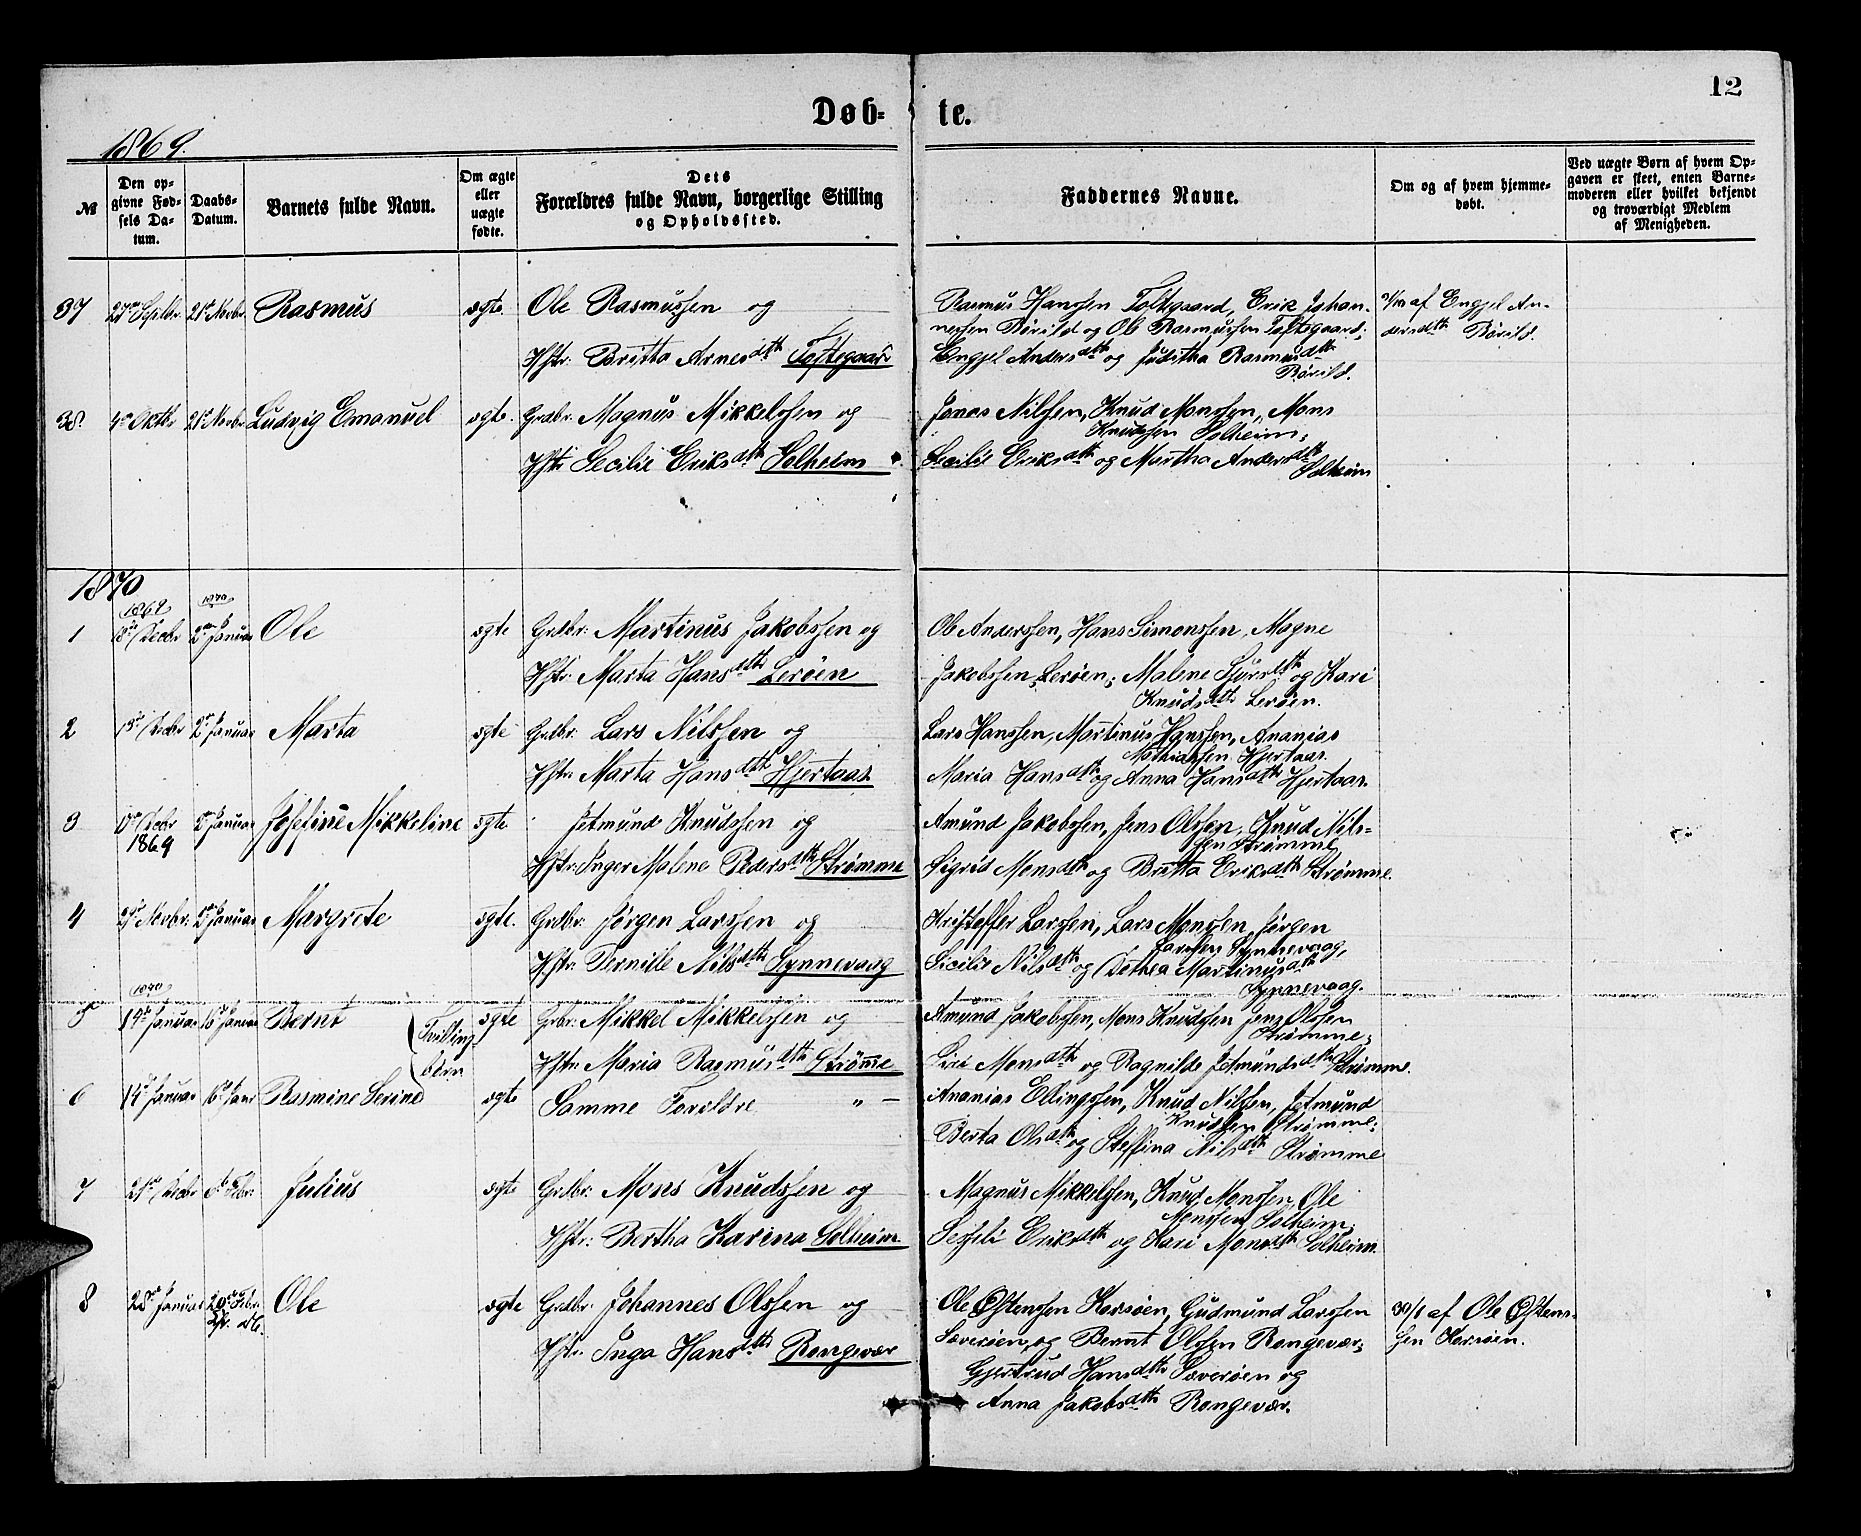 12
Døb- te.
1869.
№
Den opgivne Fødsels Datum.
Daabs-Datum.
Barnets fulde Navn.
Om ægte eller uægte fødte.
Dets Forældres fulde Navn, borgerlige Stilling og Opholdssted.
Faddernes Navne.
Om og af hvem hjemmedøbt.
Ved uægte Børn af hvem Opgaven er skeet, enten Barnemoderen eller hvilket bekjendt og troværdigt Medlem af Menigheden.
37 Septbr. 21 Novbr. Rasmus ægte. Ole Rasmussen og
Hstr. Britta Arnesdtr Toftegaard
Rasmus Hanssen Toftegaard, Erik Johan-
nessen Børild og Ole Rasmussen Toftegaard;
Engjel Andersdtr og Juditha Rasmusdtr
Børild.
af Engjel An-
dersdtr Børild.
38. 4 Oktbr 21 Novbr Ludvig Emanuel ægte. Grdbr. Magnus Mikkelssen og
Hstr Secilie Eriksdtr Solheim
Jonas Nilssen, Knud Monssen, Mons
Knudssen Solheim;
Secilie Eriksdtr og Martha Andersdtr
Solheim
1870
1869 1870
1 18 Decbr 2 Januar Ole ægte Grdbr: Martinus Jakobssen og
Hstr: Marta Hansdtr Lerøen
Ole Anderssen, Hans Simonssen, Magne
Jakobssen Lerøen; Malene Sjursdtr og Kari
Knudsdtr Lerøen.
2 13 Decbr 2 Januar Marta ægte Grdbr: Lars Nilssen og
Hstr. Marta Hansdtr Hjertaas
Lars Hanssen, Martinus Hanssen, Ananias
Mathiassen Hjertaas.
Maria Hansdtr og Anna Hansdtr Hjertaas.
3 Decbr 1869 2 Januar Josefine Mikkeline ægte Jetmund Knudssen og
Hstr: Inger Malene Pedersdtr Strømme
Amund Jakobssen, Jens Olssen, Knud Nils-
sen Strømme,
Sigrid Monsdtr og Britta Eriksdtr Strømme.
4 Novbr. 2 Januar Margrete ægte. Grdbr. Jørgen Larssen og
Hstr: Pernille Nilsdtr Synnevaag
Kristoffer Larssen, Lars Monssen, Jørgen
Larssen Synnevaag,
Sicilie Nilsdtr og Dethea Martinusdtr
Synnevaag.
1870
5 14 Januar 16 Januar Bernt Tvilling-
børn
ægte Grbr: Mikkel Mikkelssen og
Hstr: Maria Rasmusdtr Strømme
Amund Jakobssen, Mons Knudssen Jens Olssen
Strømme;
Siri Monsdtr og Ragnilde Jetmundsdtr Strømme.
6 14 Januar 16 Janr Rasmine Serine ægte Samme Forældre „ —
Ananias Ellingssen, Knud Nilssen, Jetmund
Knudssen Strømme;
Berta Olsdtr og Steffina Nilsdtr Strømme
7 Decbr 6 Febr: Julius ægte Grdbr: Mons Knudssen og
Hstr: Bertha Karina Solheim
Magnus Mikkelssen, Knud Monssen, Ole
Monssen Solheim;
Sesseli Eriksdtr og Kari Monsdtr Solheim.
8 28 Januar 20 Febr. Ole ægte Grdbr: Johannes Olssen og
Hstr. Inga Hansdtr Rongevær
Ole Østenssen Kersøen, Gudmund Larssen
Sæverøen, og Bernt Olssen Rongevær;
Gjertrud Hansdtr Sæverøen og
Anna Jakobsdtr Rongevær.
30/1 af Ole Østens-
sen Kersøen.